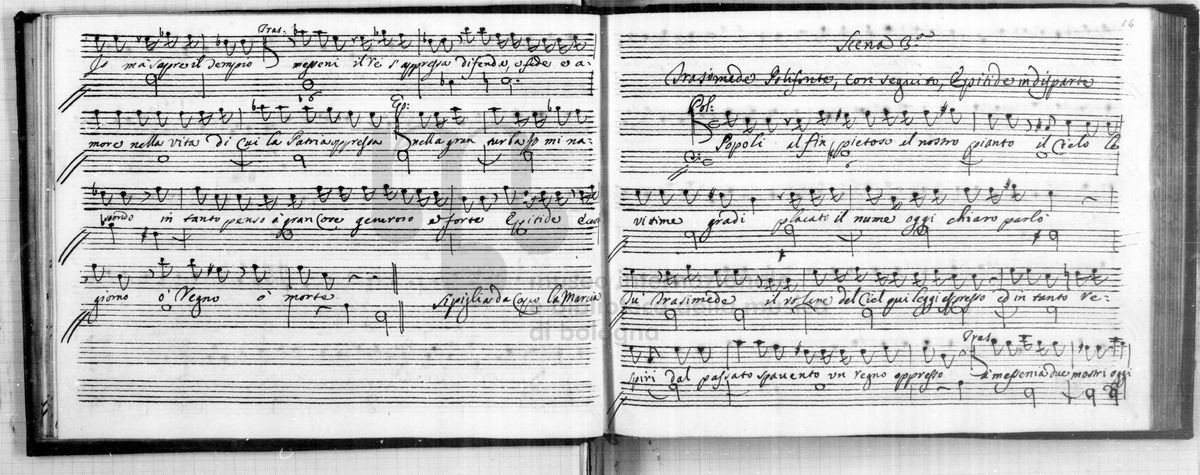 Tras:
Io ma sapre il Tempio messeni il Re s'appressa difende, e fede e a-
Ep:
more nella vita di cui la Patria oppressa nella gran turba Io mi na-
scondo in tanto penso à gran Cose generoso e forte Epitide
giorno ò Regno ò morte Si piglia da Capo la Marcia
16
Scena 3.a
Trasimede Polifonte, con seguito, Epitide in disparte
Pol:
Popoli il fin pietoso il nostro pianto il Cielo le
vitime gradi placato il nume oggi chiaro parlò
Tu Trasimede il del Ciel qui leggi espresso ed in tanto re-
Tras
spiri dal passato spavento un regno oppresso à messenia due mostri oggi
museo
biblioteca della musica
di bologna